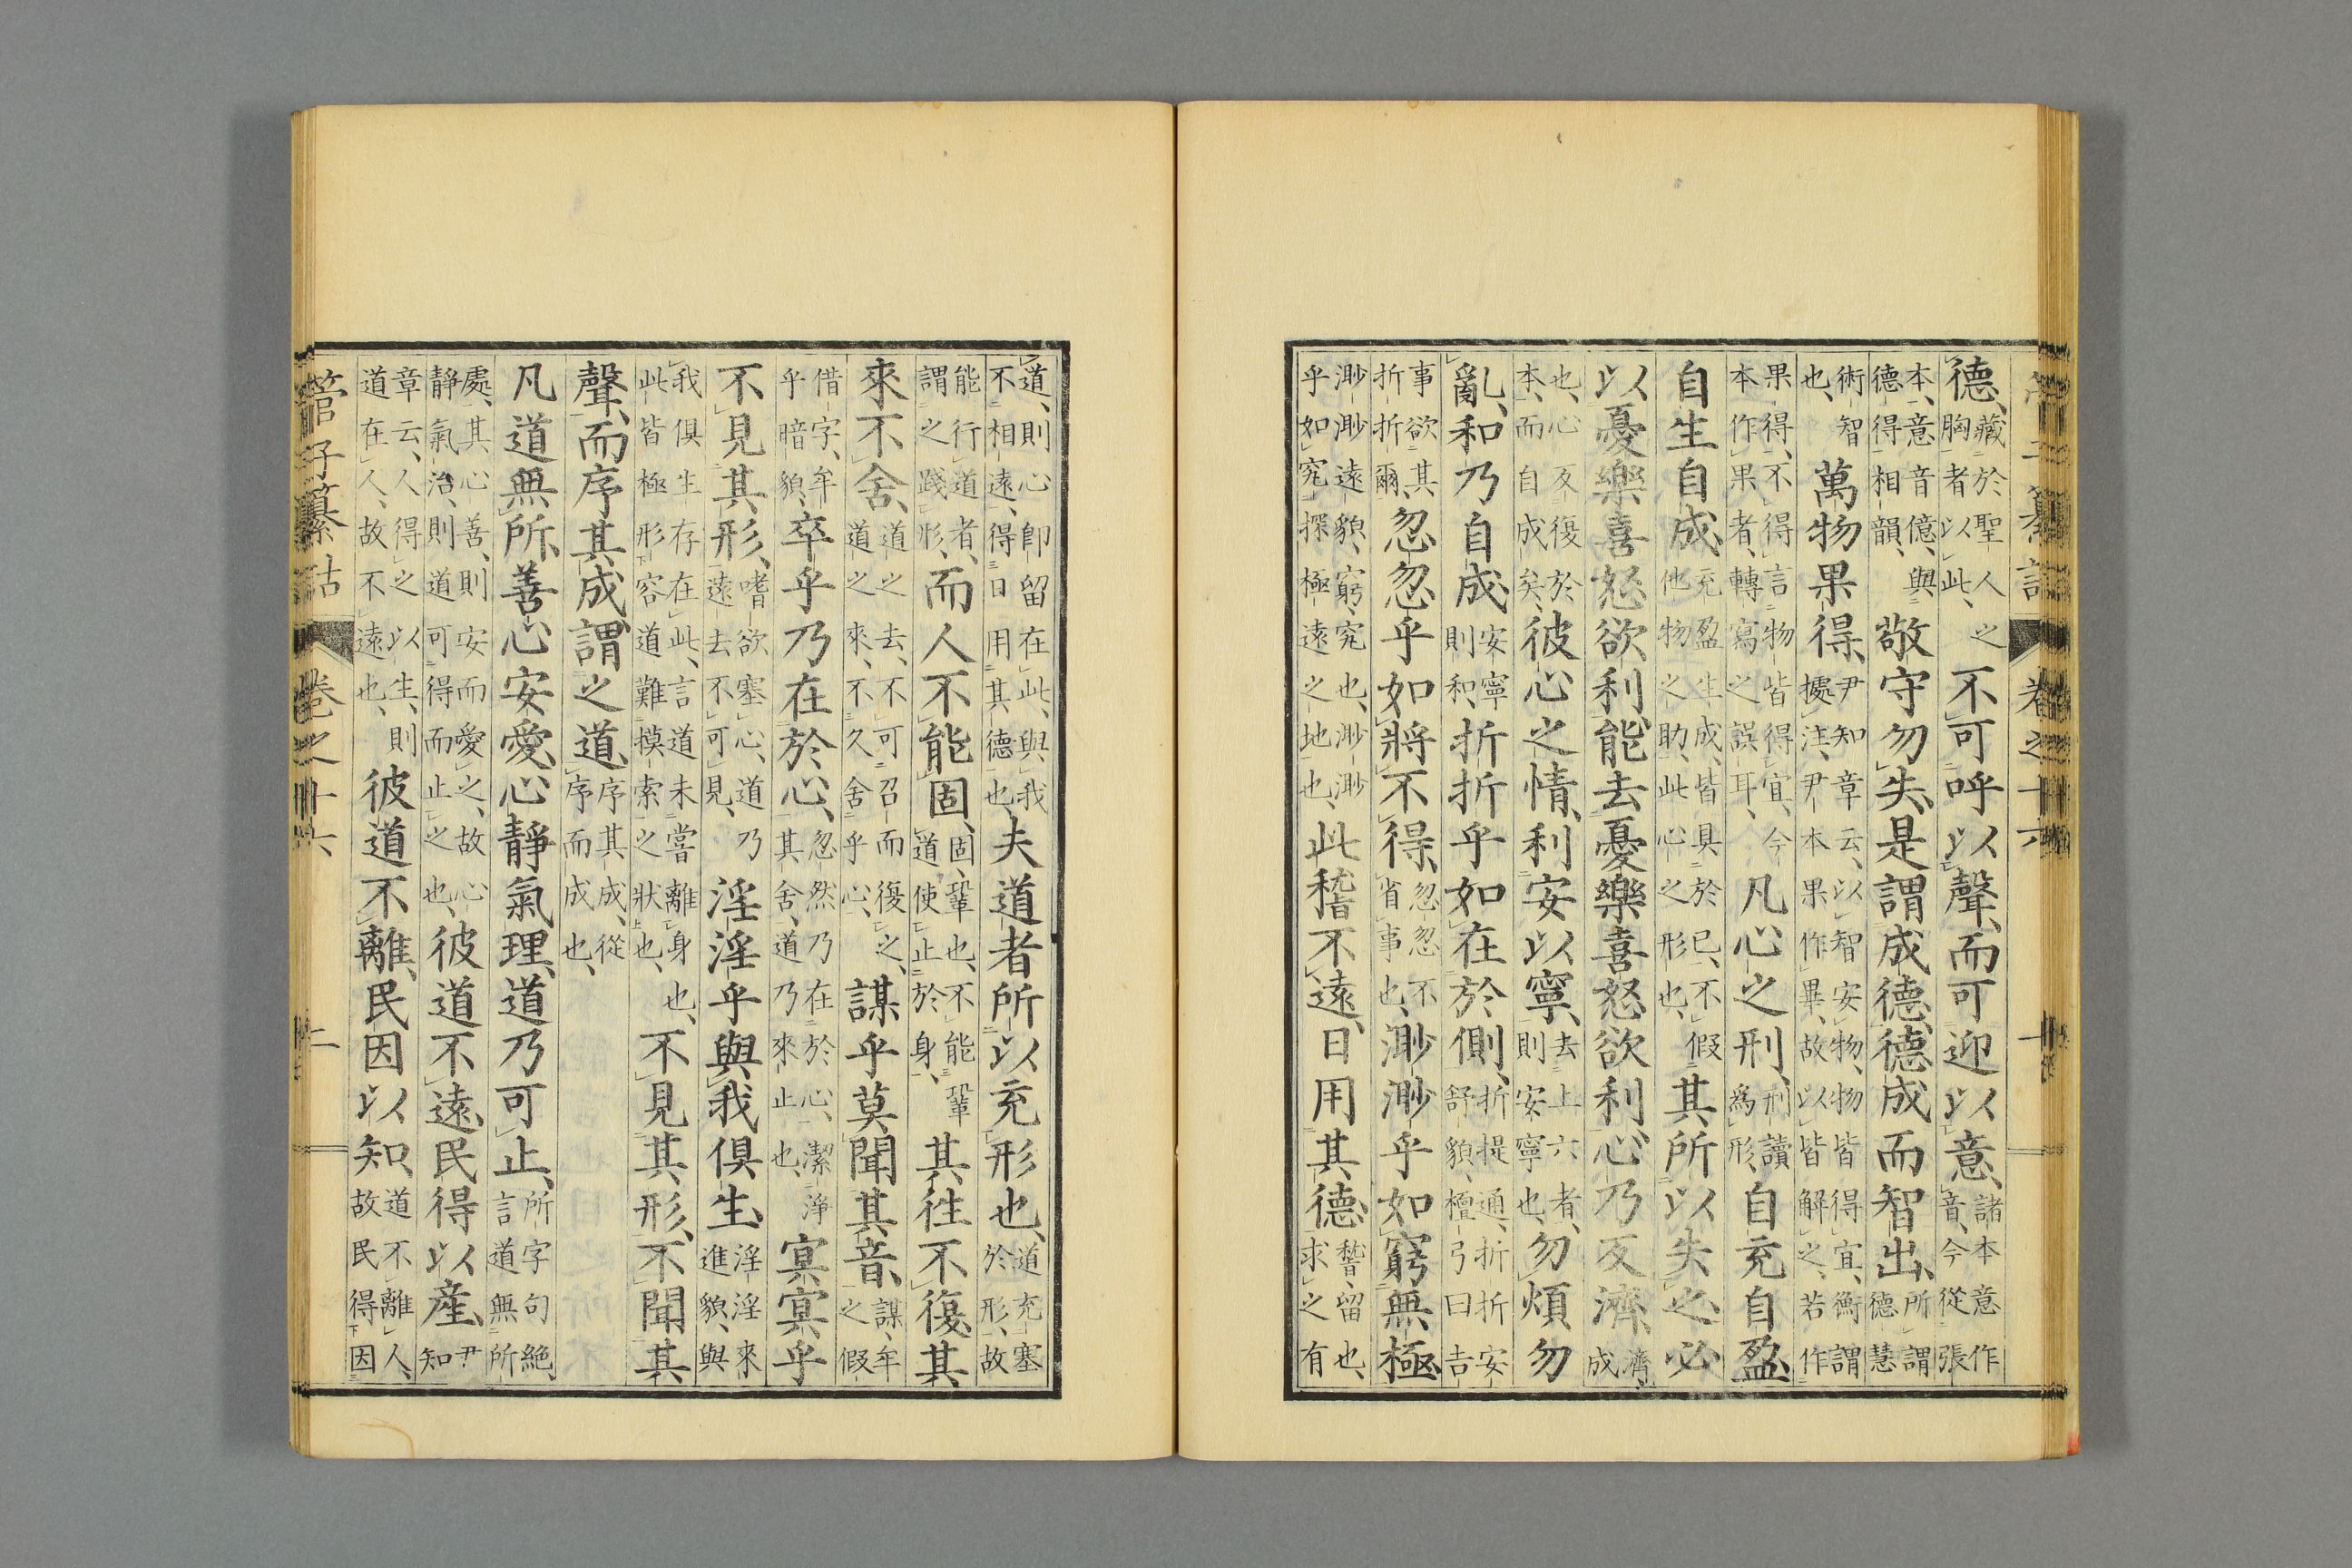 管子纂詁 卷之十六 一
德、藏於聖人之胸者以此、不可呼以聲、而可迎以意、諸本意作音、今從張
本、意音億、與德得相韻、敬守勿失、是謂成德、德成而智出、所謂德慧
術智也、萬物果得、尹知章云、以智安物、物皆得宜、衡謂據注、尹本果作畢、故以皆解之、若作
果得、不得言物皆得宜、今本作果者、轉寫之誤耳、凡心之刑、刑讀爲形、自充自盈、
自生自成、充盈生成、皆具於已、不假他物之助、此心之形也、其所以失之、必
以憂樂喜怒欲利、能去憂樂喜怒欲利、心乃反濟、濟、成
也、心反復於本、而自成矣、彼心之情、利安以寧、去上六者、則安寧也、勿煩勿
亂、和乃自成、安寧則和、折折乎如在於側、折提通、折折安舒貌、檀弓曰吉
事欲其折折爾、忽忽乎如將不得、忽忽不省事也、渺渺乎如窮無極、
渺渺遠貌、窮究也、渺渺乎如究探極遠之地也、此稽不遠、日用其德、稽、留也、求之有
道、則心卽留在此、與我不相遠、得日用其德也、夫道者所以充形也、道充塞於形、故
能行道者、謂之踐形、而人不能固、固、鞏也、不能鞏道使止於身、其往不復、其
來不舍、道之去、不可召而復之、道之來、不久舍乎心、謀乎莫聞其音、謀、牟之假
借字、牟乎暗貌、卒乎乃在於心、忽然乃在於心、潔淨其舍、道乃來止也、冥冥乎
不見其形、嗜欲塞心、道乃遠去不可見、淫淫乎與我俱生、淫淫來進貌、與
我俱生存在此、言道未嘗離身也、此皆極形容道難摸索之狀也、不見其形、不聞其
聲、而序其成、謂之道、序其成、從序而成也、
凡道無所、善心安愛、心靜氣理、道乃可止、所字句絶言道無所
處、其心善、則安而愛之、故心靜氣治、則道可得而止之也、彼道不遠、民得以產、尹知
章云、人得之以生、則道在人、故不遠也、彼道不離、民因以知、道不離人、故民得因
管子纂詁 卷之十六 二